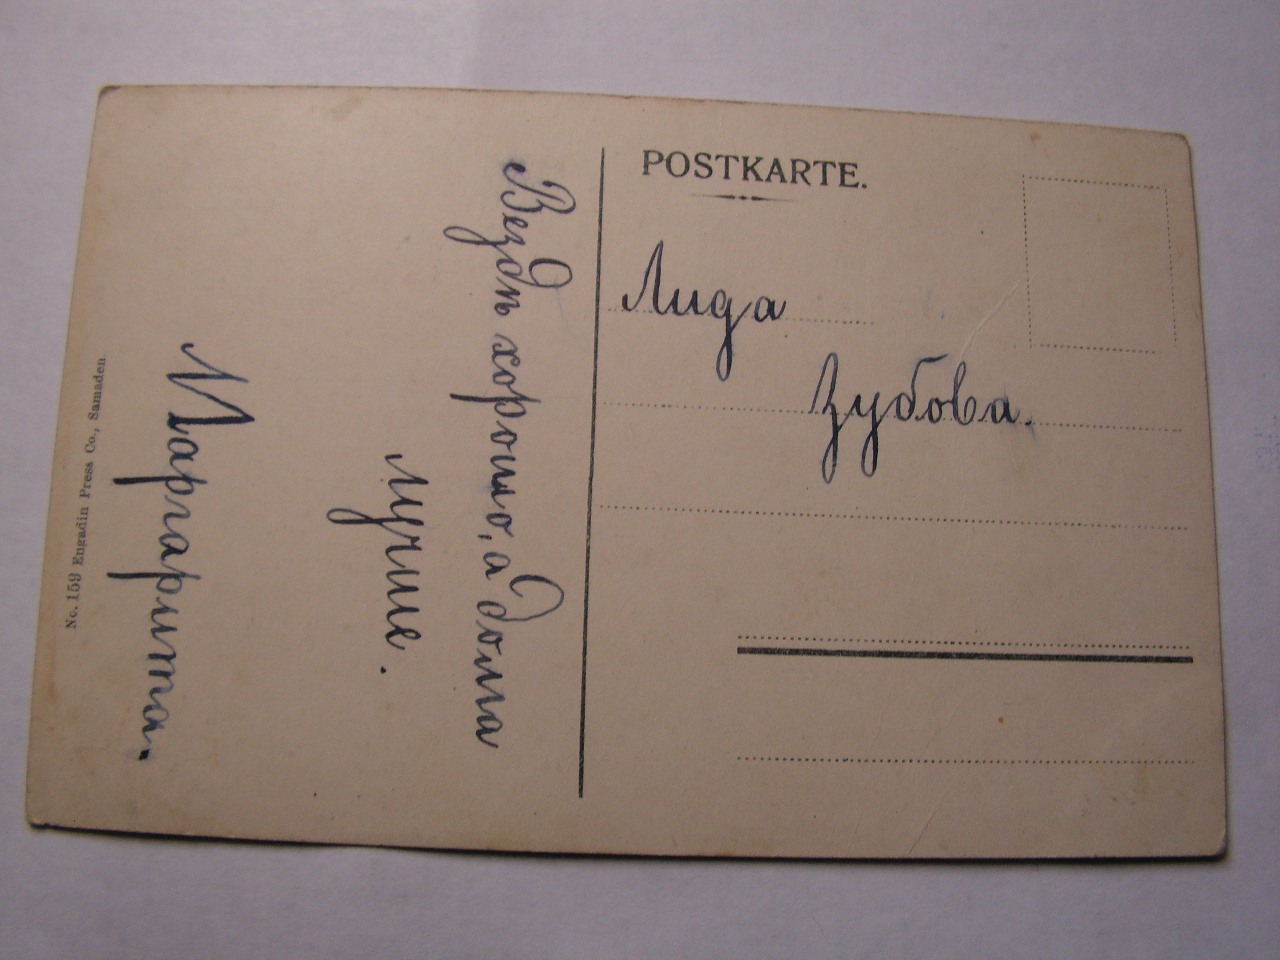 POSTKARTE.
Лида
Зубова.
Вездѣ хорошо, а дома
лучше.
Маргарита.
No. 159 Engadin Press Co., Samaden.